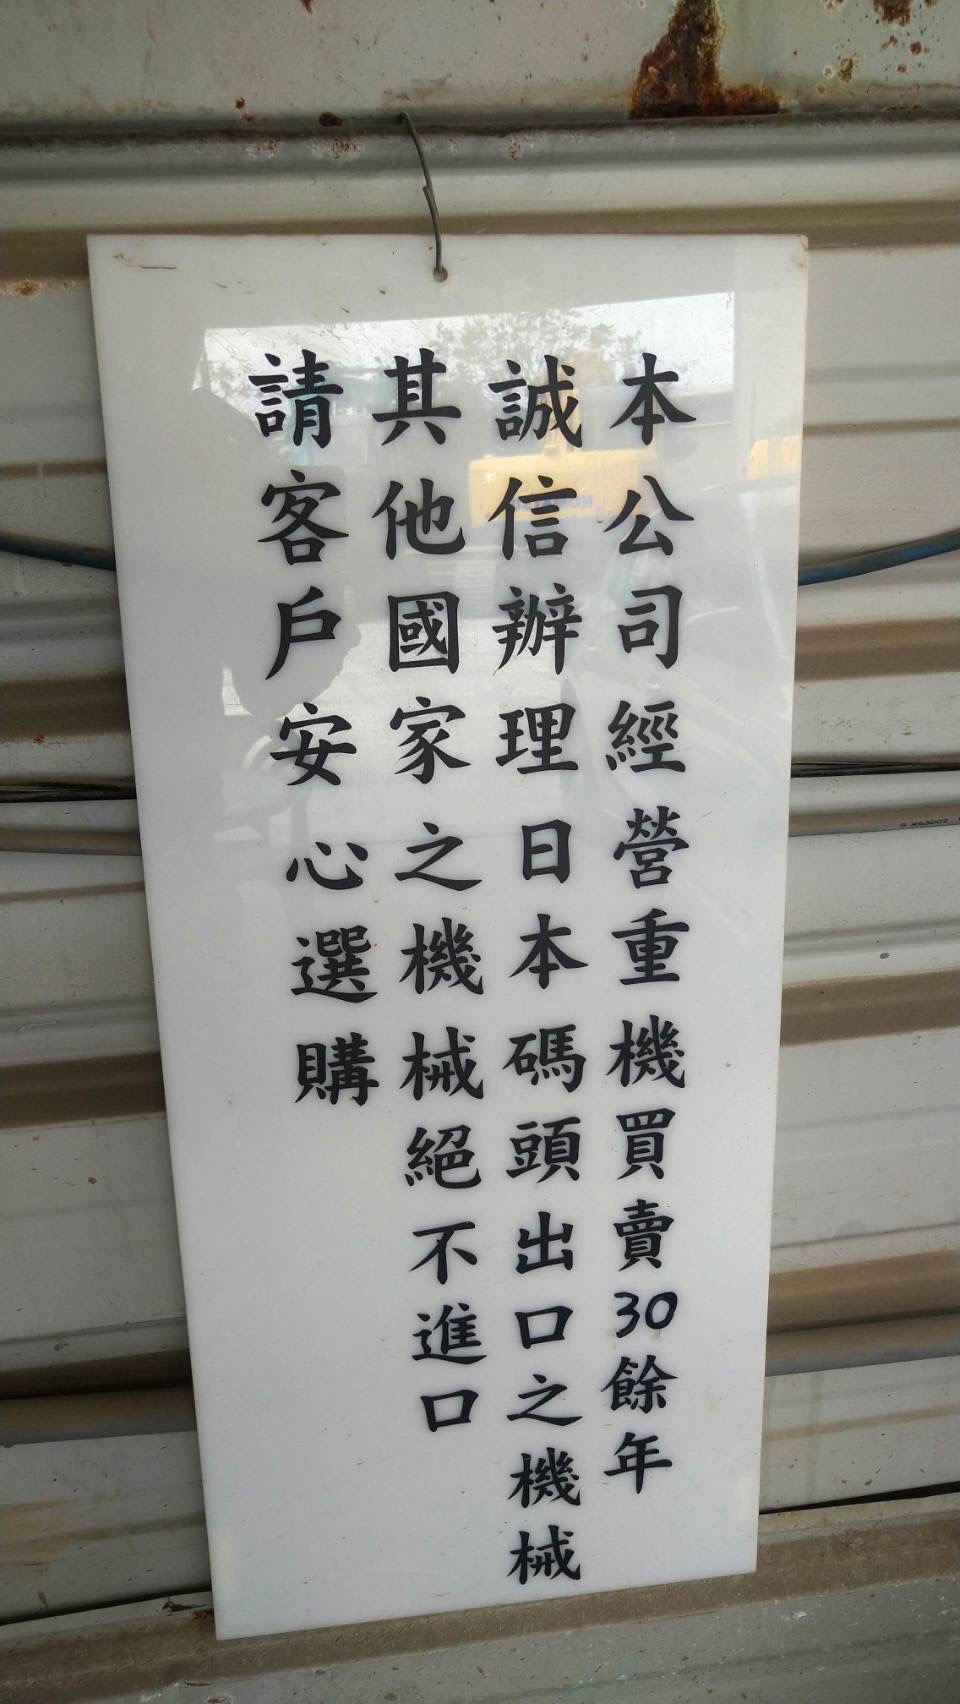 本公司經營重機買賣30餘年
誠信辦理日本碼頭出口之機械
其他國家之機械絕不進口
請客戶安心選購